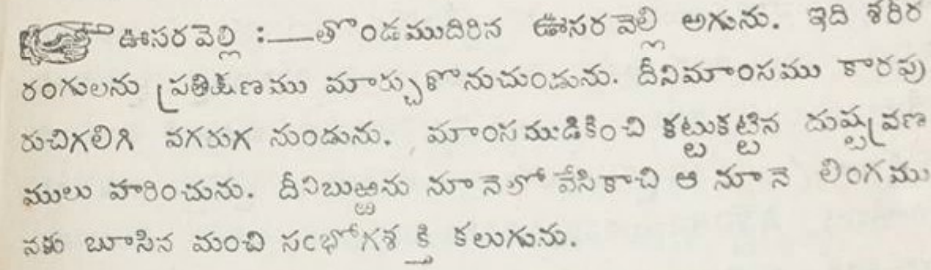 ఊసరవెల్లి :—తొండముదిరిన ఊసరవెల్లి అగును. ఇది శరీర
రంగులను ప్రతిక్షణము మార్చుకొనుచుండును. దీనిమాంసము కారపు
రుచిగలిగి వగరుగ నుండును. మాంసముడికించి కట్టుకట్టిన దుష్టవ్రణ
ములు హరించును. దీనిబుఱ్ఱను నూనెలో వేసికాచి ఆ నూనె లింగము
నకు బూసిన మంచి సంభోగశక్తి కలుగును.